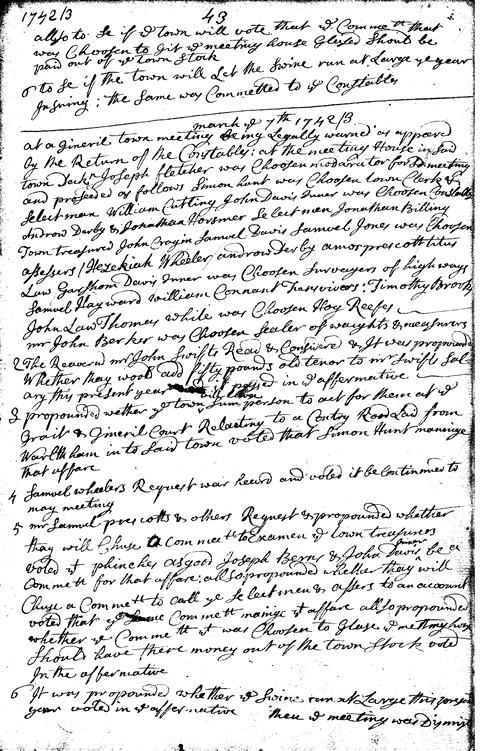 1742/3 43
allso to se if ye town will vote that ye Commett that
was Choosen to Git ye meeting house Glesed Should be
paid out of ye town Stock
6 to se if the town will Let the Swine run at Large ye year
Insuing: the Same was Committed to ye Constables
march ye 7th 1742/3
at a Gineril town meeting being Legally warned as appeared
by the Return of the Constables: at the meeting House in Said
town Deckn Joseph fletcher was Choosen modarator for Sd meeting
and proseded as follows Simon hunt was Choosen town Clerk &
Select man William Cutting John Davis Iner was Choosen Constables
Androw Darby & Jonathan Horsmer Select men Jonathan Billing
Town treasured John Cragin Samuel Davis Samuel Jones was Choosen
assessers / Hezekiah Wheeler androw Derby amos prescott titus
Law Garshom Davis Inner was Choosen Survayers of high ways
Samuel Hayward William Connant : Timothy Brook
John Law Thomas while was Choosen Hay Reefes
mr John Barker was Choosen Sealer of waights & measurers
2 The Reaverad mr John Swifts Read & Consivere & It was propounded
Whether thay wood add fifty pounds old tenor to mr Swifts Sal
ary this present year passed in ye affermative
3 propounded wether ye town will Chuse sum person to act for them at ye
Grait & Gineril Court Relaiting to a Contry Road Laid from
Warltham in to Said town voted that Simon Hunt manige
that affare
4 Samuel wheelers Request was heard and voted it be Continued to
may meeting
5 mr Samuel prescotts & others Request & propounded whether
thay will Chuse a Commett to Examen ye town treasurers
voted yt phinehes asgood Joseph Berns & John Davis Iner be a
Commett for that affare: allso propounded whether thay will
Chuse a Commett to call ye Select men & assers to an account
voted that ye Same Commett manige yt affare allso propounded
whether ye Commett yt was Choosen to Glase ye metting hous
Should have there money out of the town Stock voted
In the affermative
6 It was propounded whether ye Swine run at Large this present
year voted in ye affermative then ye meeting was Dismist